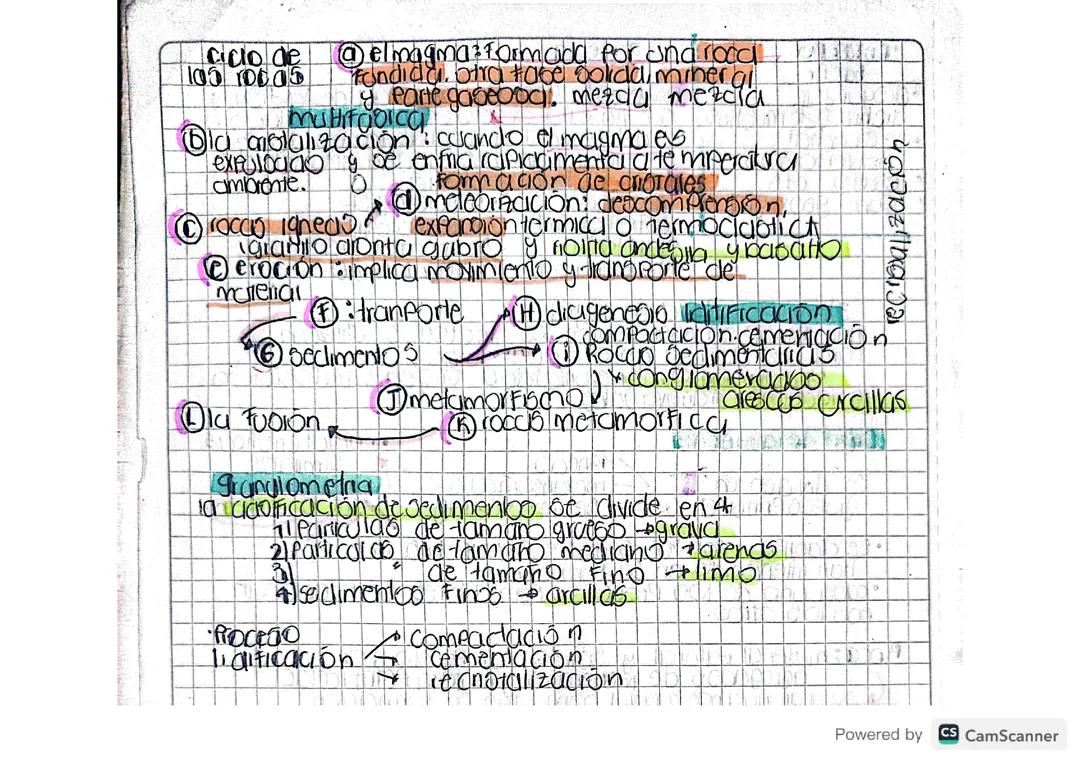 ciclo de las rocas
(a) el magma: formada por una roca
fundida, otra fase solida, mineral
y parte gaseosa. mezcla mezcla
multifasica
(b) la cristalización: cuando el magma es
expulsado y se enfria rapidamente a temperatura
ambiente. formación de cristales
(d) meteorización: descompresion,
(c) rocas igneas expansion termica o termoclastica
granito gabro y andesita y basalto
(e) eroción: implica movimiento y transporte de
material
(F): tranporte (H) diagenesis litificación
compactación. cementación
recristalización
(G) sedimentos (i) Rocas sedimentarias
conglomerados
(J) metamorfismo arcillas
(L) la fusión (K) rocas metamorfica
granulometria
la clasificación de sedimentos se divide en 4
1) Particulas de tamaño grueso → grava
2) Particulas de tamaño mediano → arenas
3) " de tamaño fino → limo
4) sedimentos finos → arcillas
·Proceso → compactación
litificación → cementación
→ recristalización
Powered by CS CamScanner